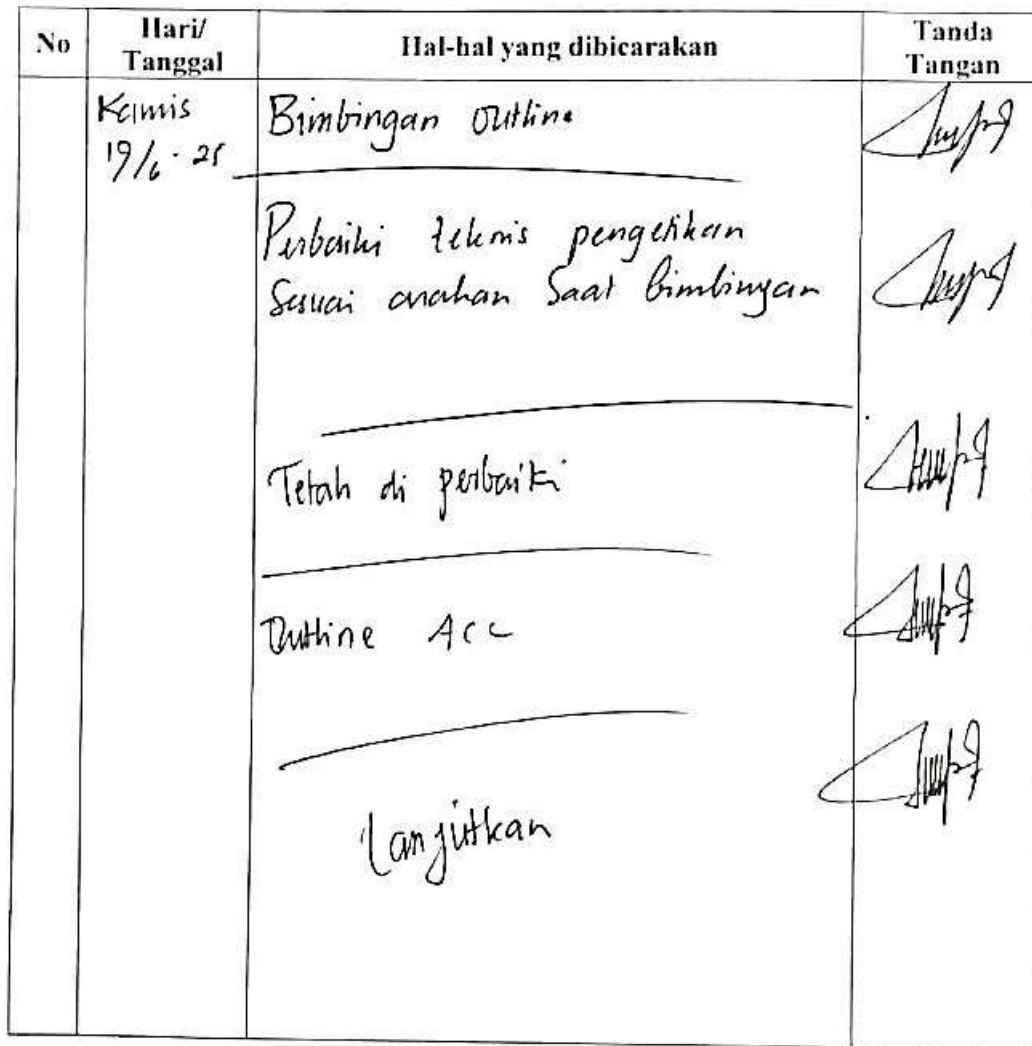 No
Hari/
Tanggal
Hal-hal yang dibicarakan
Tanda
Tangan
Kamis
19/6 - 25
Bimbingan Outline
Perbaiki teknis pengetikan
Sesuai arahan Saat bimbingan
Telah di perbaiki
Outline Acc
Lanjutkan